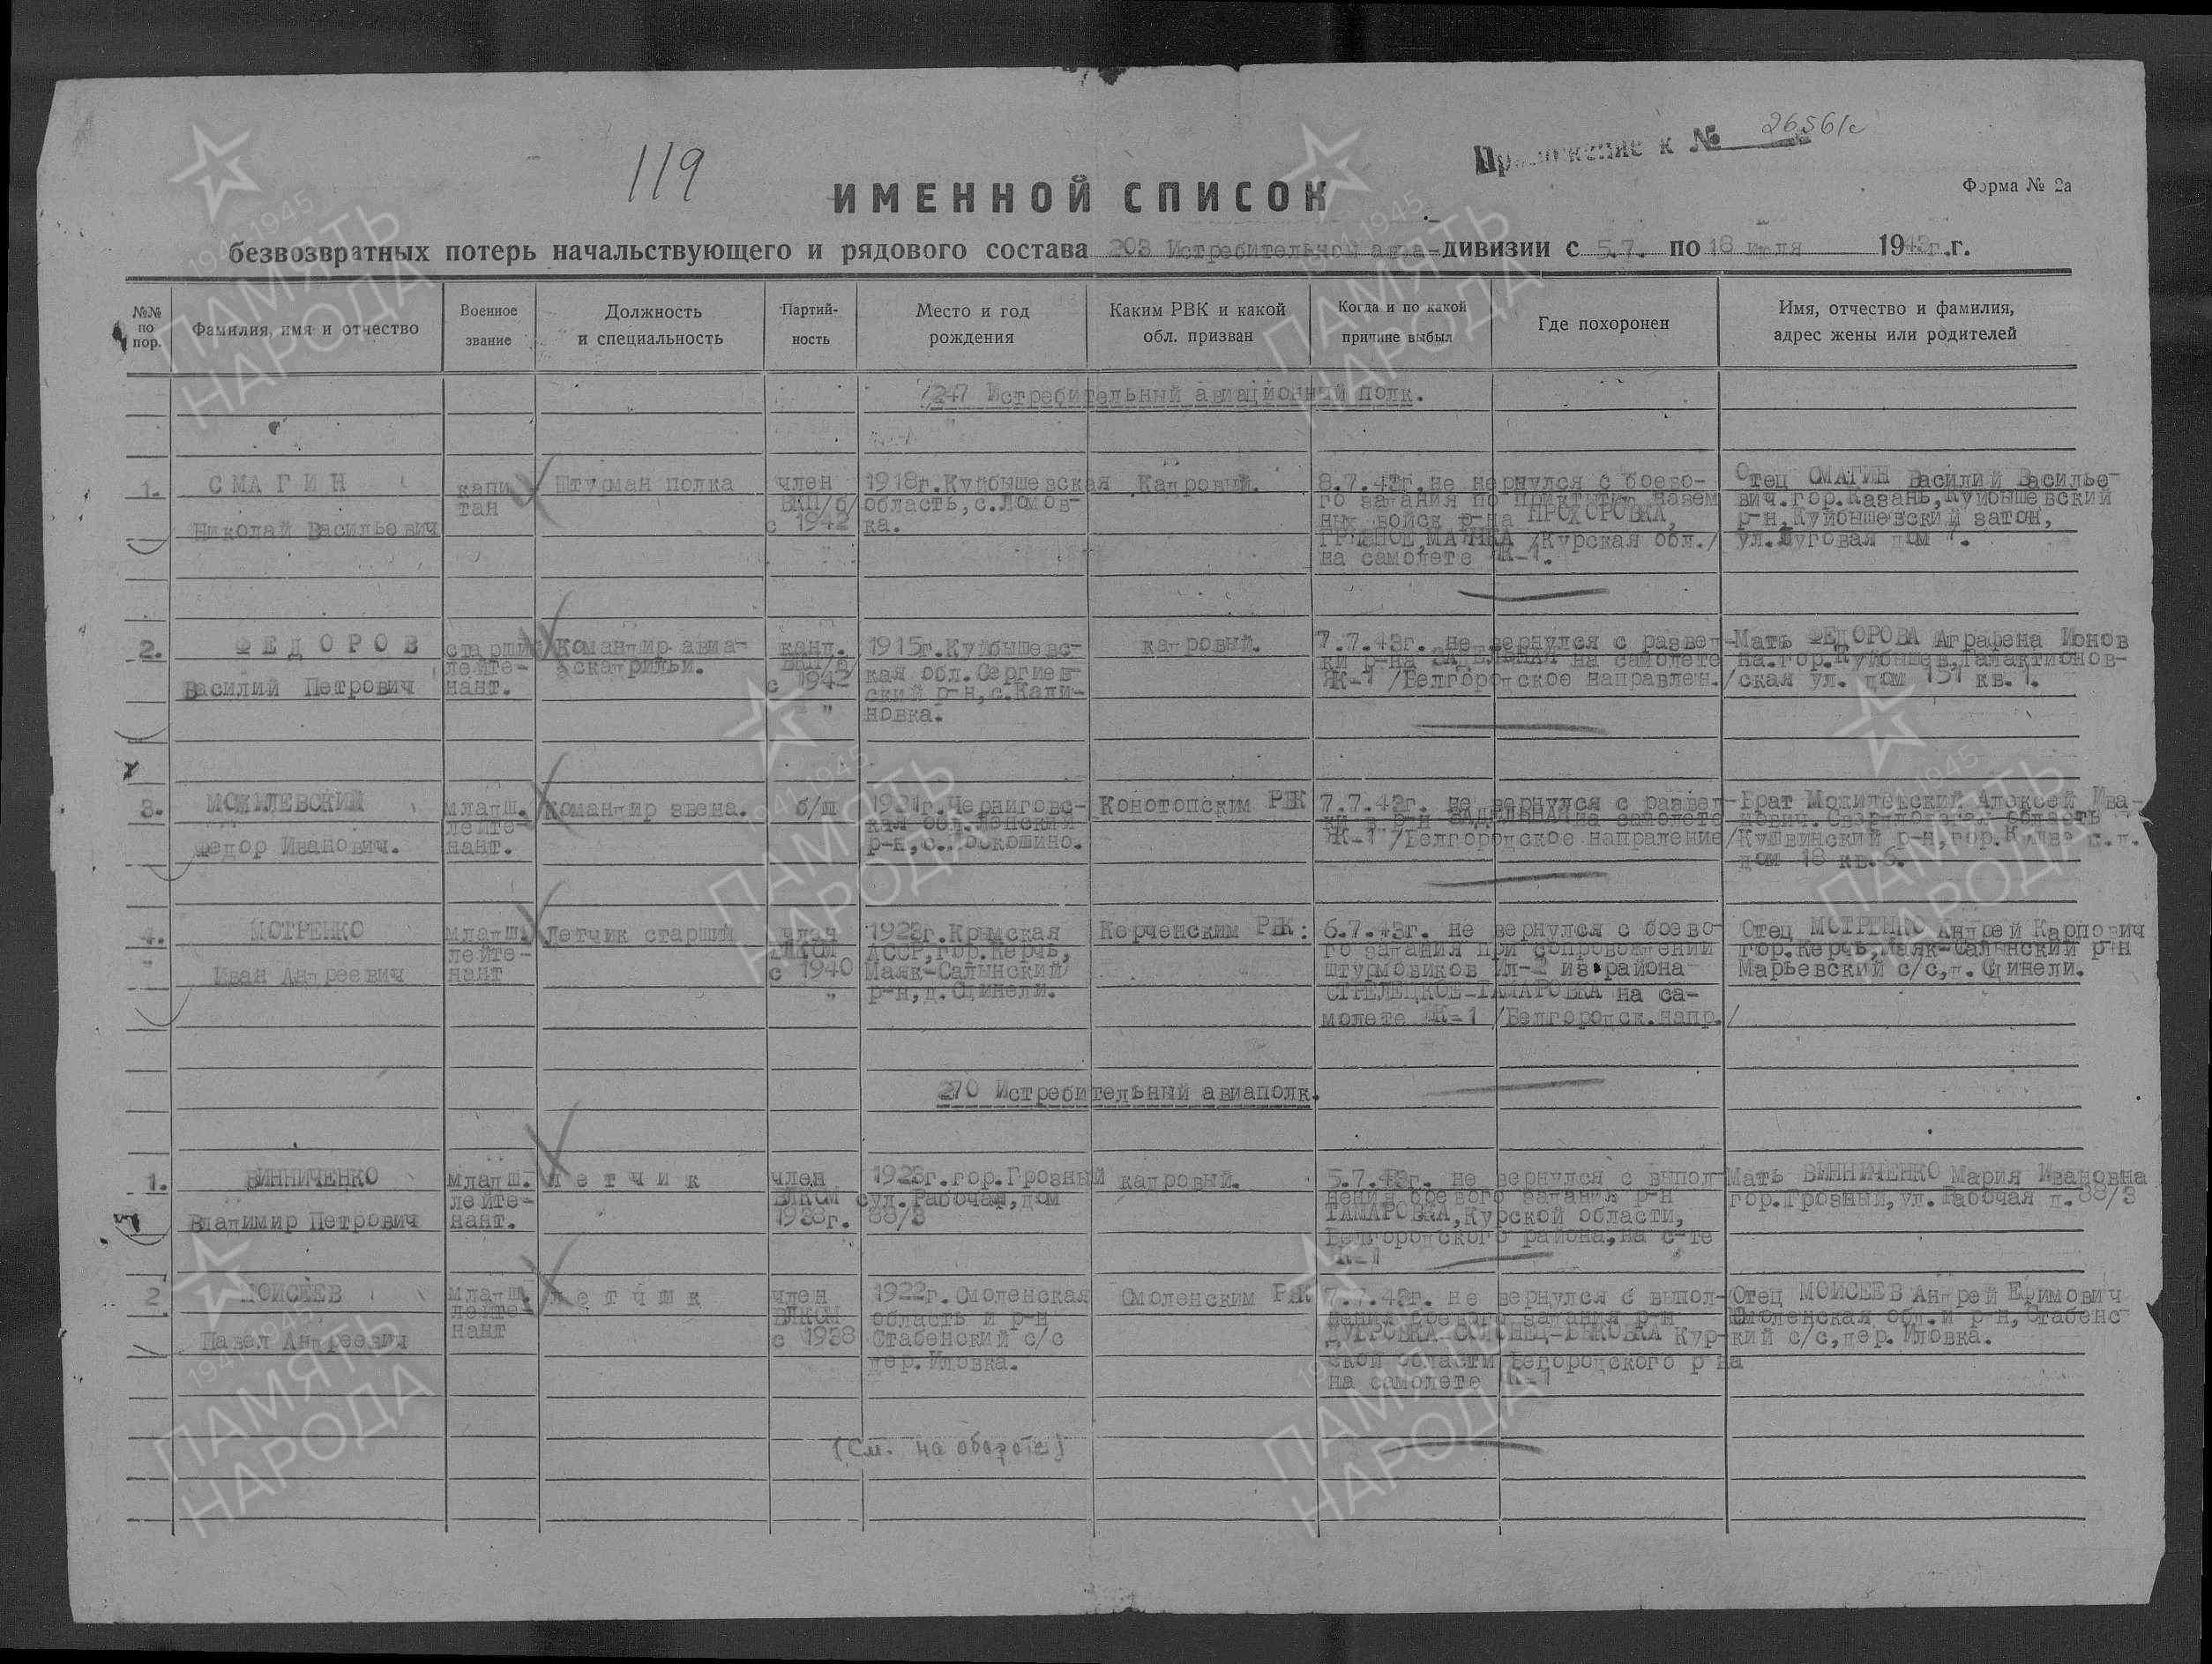 119
Приложение к № 26561с
ИМЕННОЙ СПИСОК
Форма № 2а
безвозвратных потерь начальствующего и рядового состава 203 Истребительной авиа-дивизии с 5.7. по 18 июля 1943г.г.
№№ по пор.
Фамилия, имя и отчество
Военное звание
Должность и специальность
Партий-ность
Место и год рождения
Каким РВК и какой обл. призван
Когда и по какой причине выбыл
Где похоронен
Имя, отчество и фамилия, адрес жены или родителей
247 Истребительный авиационный полк.
1.
СМАГИН
Николай Васильевич
капи
тан
Штурман полка
член
ВКП/б/
с 1942
1918г.Куйбышевская
область, с.Ломов-
ка.
Кадровый.
8.7.43г.не вернулся с боево-
го задания по прикрытию назем
ных войск р-на ПРОХОРОВКА,
ГРЯЗНОЕ, МАЯЧКА /Курская обл./
на самолете ЯК-1.
Отец СМАГИН Василий Василье-
вич.гор.Казань,Куйбышевский
р-н,Куйбышевский затон,
ул.Луговая дом
2.
ФЕДОРОВ
Василий Петрович
старший
лейте-
нант.
Командир авиа-
эскадрильи.
канд.
ВКП/б/
с 1942
"
1915г.Куйбышевс-
кая обл.Сергиев-
ский р-н, с.Кали-
новка.
кадровый.
7.7.43г. не вернулся с развед-
ки р-на ЗАДЕЛЬНАЯ на самолете
ЯК-1 /Белгородское направлен./
Мать ФЕДОРОВА Аграфена Ионов
на.гор.Куйбышев,Галактионов-
ская ул. дом 151 кв. 1.
3.
МОЖИЛЕВСКИЙ
Федор Иванович.
младш.
лейте-
нант.
Командир звена.
б/п
1921г.Черниговс-
кая обл.
р-н,
Конотопским РВК
7.7.43г. не вернулся с развед-
ки в р-н ЗАДЕЛЬНАЯ на самолете
ЯК-1 /Белгородское напраление/
Брат Алексей Ива-
нович.Свердловская область
Кушвинский р-н,гор.Кушва
дом 18 кв.6.
4.
МОТРЕНКО
Иван Андреевич
младш.
лейте-
нант
Летчик старший
член
ВЛКСМ
с 1940
"
1923г.Крымская
АССР,гор.Керчь,
Маяк-Салынский
р-н,д.
Керченским РВК:
6.7.43г. не вернулся с боево-
го задания при сопровождении
штурмовиков Ил-2 из района
СТРЕЛЕЦКОЕ-ТАМАРОВКА на са-
молете ЯК-1 /Белгородск.напр./
Отец МОТРЕНКО Андрей Карпович
гор.Керчь,Маяк-Салынский р-н
Марьевский с/с,д.
270 Истребительный авиаполк.
1.
ВИННИЧЕНКО
Владимир Петрович
младш.
лейте-
нант.
летчик
член
ВЛКСМ с
1938г.
1923г.гор.Грозный
ул. Рабочая,дом
88/3
кадровый.
5.7.43г. не вернулся с выпол-
нения боевого задания р-н
ТАМАРОВКА,Курской области,
Белгородского района,на с-те
ЯК-1
Мать ВИННИЧЕНКО Мария Ивановна
гор.Грозный,ул.Рабочая д.88/3
2.
МОИСЕЕВ
Павел Андреевич
младш.
лейте-
нант
летчик
член
ВЛКСМ
с 1938
1922г.Смоленская
область и р-н
Стабенский с/с
дер.Иловка.
Смоленским РВК
7.7.43г. не вернулся с выпол-
нения боевого задания р-н
БЫКОВКА Кур-
ской области Бегородского р на
на самолете ЯК-1
Отец МОИСЕЕВ Андрей Ефимович
Смоленская обл.и р-н,Стабенс-
кий с/с,дер.Иловка.
(См. на обороте)
1941 1945
ПАМЯТЬ
НАРОДА